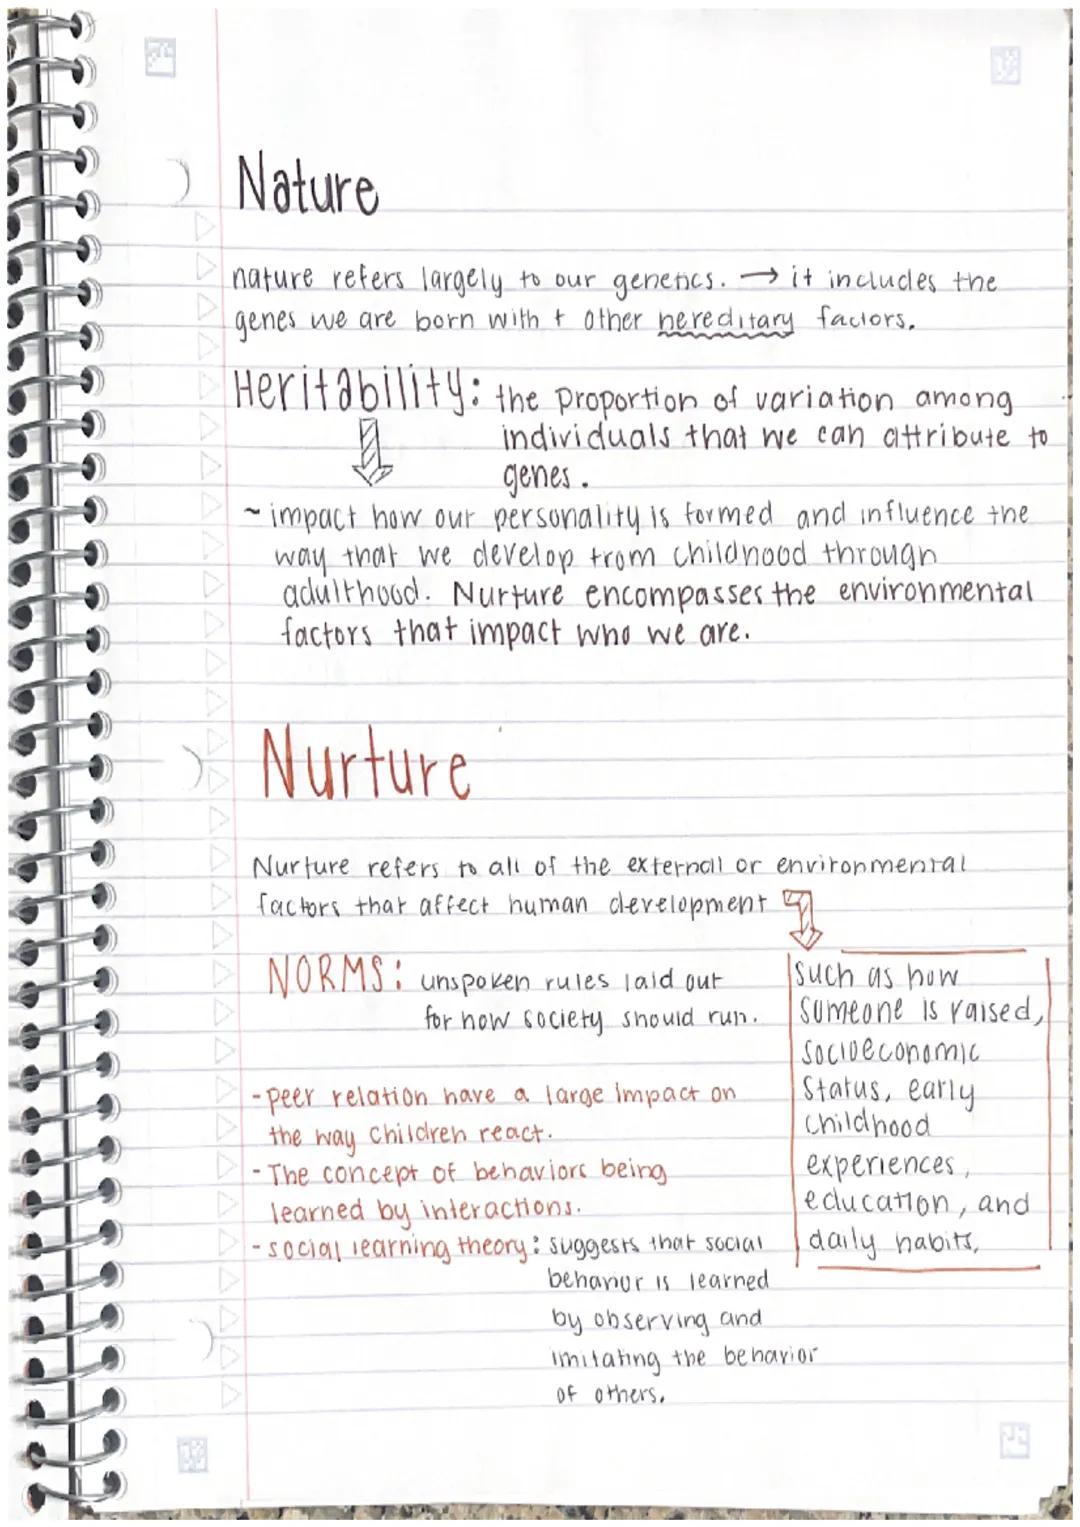 Nature
nature refers largely to our genetics. → it includes the
genes we are born with + other hereditary factors.
Heritability: the proportion of variation among
individuals that we can attribute to
genes.
~ impact how our personality is formed and influence the
way that we develop from childhood through
adulthood. Nurture encompasses the environmental
factors that impact who we are.
Nurture
Nurture refers to all of the external or environmental
factors that affect human development
NORMS: unspoken rules laid out
for how society should run.
such as how
someone is raised,
socioeconomic
status, early
childhood
experiences,
education, and
daily habits,
- peer relation have a large impact on
the way children react.
- The concept of behaviors being
learned by interactions.
- social learning theory: suggests that social
behavior is learned
by observing and
imitating the behavior
of others.